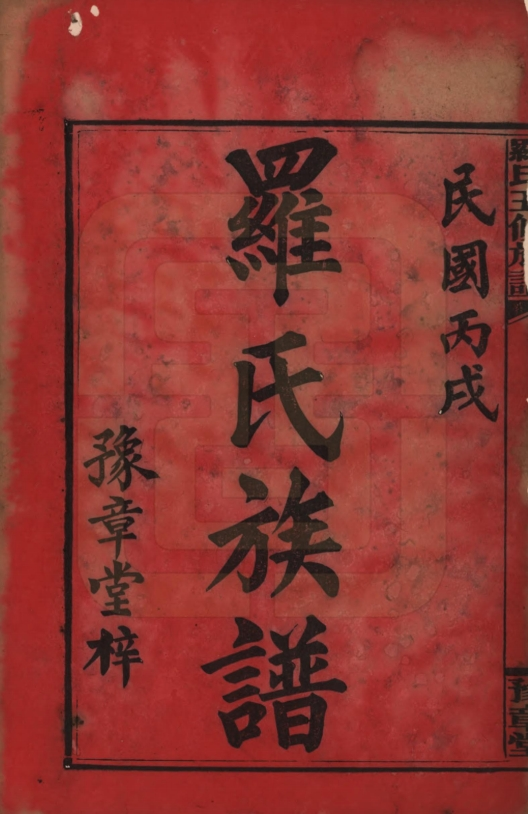 民國丙戌
羅氏族譜
豫章堂梓
羅氏五修族譜
豫章堂